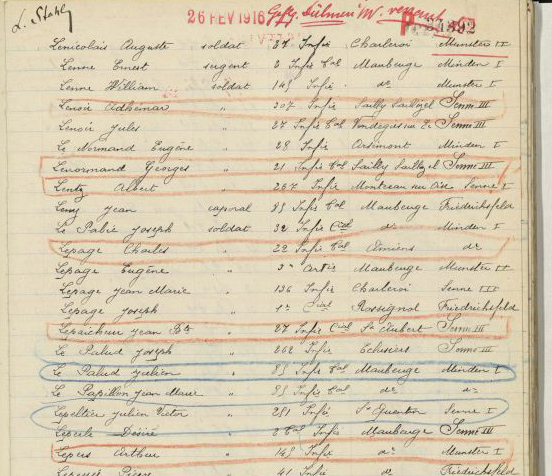 L. Stahly
26 FEV 1916 Gefg. Dülmen
P 31892
Lenicolais Auguste soldat 27 Infie Charleroi Munster II
Lenne Ernest sergent 2 Infie Cal Maubeuge Minden I
Lenne William soldat 145 Infie do Munster I
Lenoir Adhémar " 307 Infie Sailly Saillizel Senne III
Lenoir Jules " 27 Infie Cal Senne III
Le Normand Eugène " 28 Infie Arsimont Minden I
Lenormand Georges " 21 Infie Cal Sailly Saillizel Senne III
Lentz Albert " 267 Infie Montceau sur Oise Senne I
Jean caporal 85 Infie Cal Maubeuge Friedrichsfeld
Le Palie Joseph soldat 32 Infie Cial do Minden I
Lepage Charles " 22 Infie Cal Amiens do
Lepage Eugène " 3e Artie Maubeuge Munster III
Lepage Jean Marie " 136 Infie Charleroi Senne III
Lepage Joseph " 1er Cial Rossignol Friedrichsfeld
Lepaicheur Jean Bte " 27 Infie Cial St Aubert Senne III
Le Palud Joseph " 262 Infie Senne III
Le Palud Julien " 85 Infie Cal Maubeuge Minden I
Le Papillon Jean Marie " 85 Infie Cal do do
Lepeltier Julien Victor " 251 Infie St Quentin Senne I
Désiré " 2 Cal Infie Maubeuge Senne III
Lepers Arthur " 145 Infie do Munster I
41 Infie do Friedrichsfeld